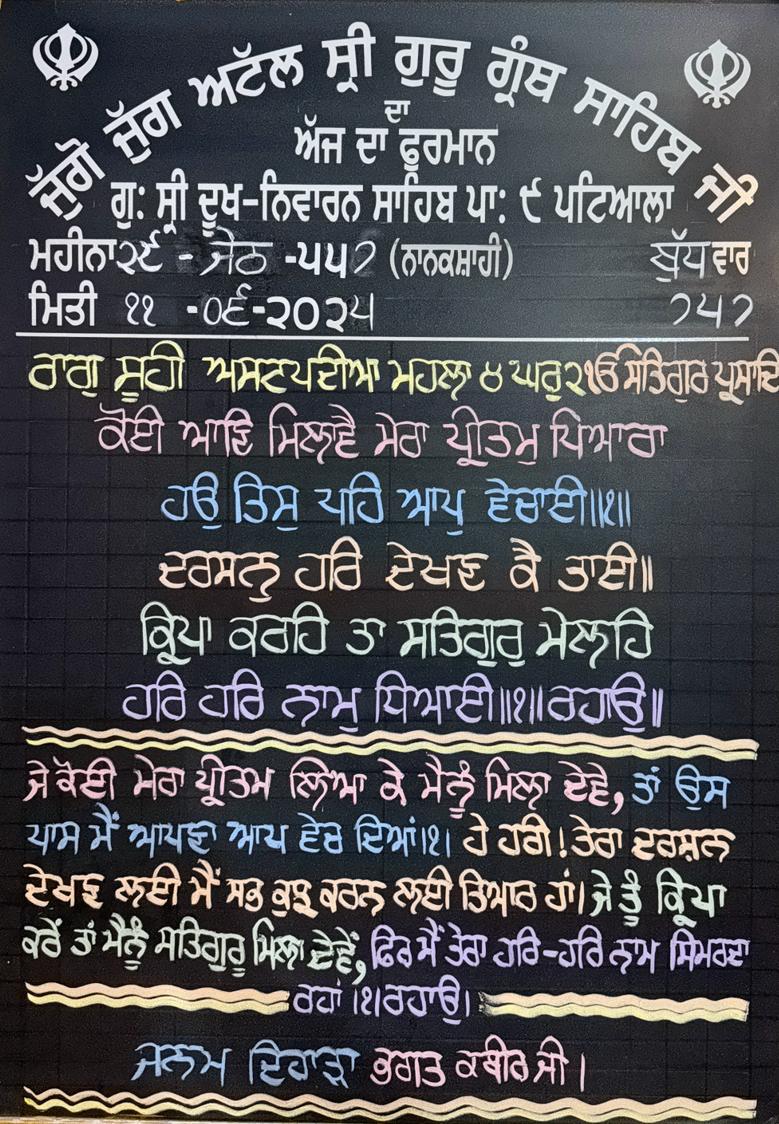 ਜੁੱਗੋ ਜੁੱਗ ਅਟੱਲ ਸ੍ਰੀ ਗੁਰੂ ਗ੍ਰੰਥ ਸਾਹਿਬ ਜੀ
ਦਾ
ਅੱਜ ਦਾ ਫੁਰਮਾਨ
ਗੁ: ਸ੍ਰੀ ਦੂਖ-ਨਿਵਾਰਨ ਸਾਹਿਬ ਪਾ: ੯ ਪਟਿਆਲਾ
ਮਹੀਨਾ ੨੯ - ਜੇਠ -੫੫੭ (ਨਾਨਕਸ਼ਾਹੀ) ਬੁੱਧਵਾਰ
ਮਿਤੀ ੧੧ -੦੬-੨੦੨੫ ੭੫੭
ਰਾਗੁ ਸੂਹੀ ਅਸਟਪਦੀਆ ਮਹਲਾ ੪ ਘਰੁ ੨ ੴ ਸਤਿਗੁਰ ਪ੍ਰਸਾਦਿ
ਕੋਈ ਆਣਿ ਮਿਲਾਵੈ ਮੇਰਾ ਪ੍ਰੀਤਮੁ ਪਿਆਰਾ
ਹਉ ਤਿਸੁ ਪਹਿ ਆਪੁ ਵੇਚਾਈ॥੧॥
ਦਰਸਨੁ ਹਰਿ ਦੇਖਣ ਕੈ ਤਾਈ॥
ਕ੍ਰਿਪਾ ਕਰਹਿ ਤਾ ਸਤਿਗੁਰੁ ਮੇਲਹਿ
ਹਰਿ ਹਰਿ ਨਾਮੁ ਧਿਆਈ॥੧॥ਰਹਾਉ॥
ਜੇ ਕੋਈ ਮੇਰਾ ਪ੍ਰੀਤਮ ਲਿਆ ਕੇ ਮੈਨੂੰ ਮਿਲਾ ਦੇਵੈ, ਤਾਂ ਉਸ
ਪਾਸ ਮੈਂ ਆਪਣਾ ਆਪ ਵੇਚ ਦਿਆਂ।੧। ਹੇ ਹਰੀ! ਤੇਰਾ ਦਰਸ਼ਨ
ਦੇਖਣ ਲਈ ਮੈਂ ਸਭ ਕੁਝ ਕਰਨ ਲਈ ਤਿਆਰ ਹਾਂ। ਜੇ ਤੂੰ ਕ੍ਰਿਪਾ
ਕਰੇਂ ਤਾਂ ਮੈਨੂੰ ਸਤਿਗੁਰੂ ਮਿਲਾ ਦੇਵੇਂ, ਫਿਰ ਮੈਂ ਤੇਰਾ ਹਰਿ-ਹਰਿ ਨਾਮ ਸਿਮਰਦਾ
ਰਹਾਂ ।੧।ਰਹਾਉ।
ਜਨਮ ਦਿਹਾੜਾ ਭਗਤ ਕਬੀਰ ਜੀ।